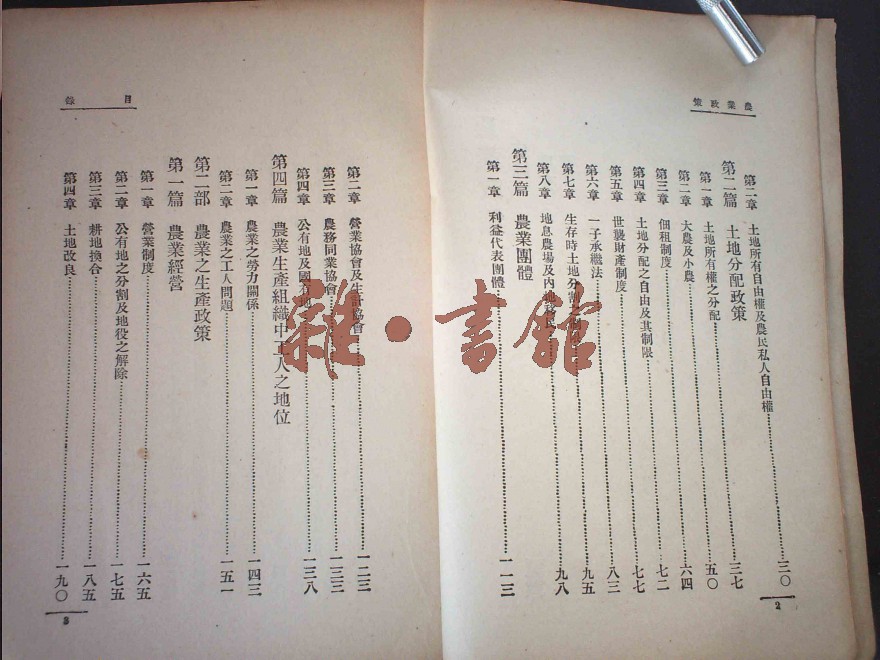 農業政策
第二章 土地所有自由權及農民私人自由權……三〇
第二篇 土地分配政策……三七
第一章 土地所有權之分配……五〇
第二章 大農及小農……六四
第三章 佃租制度……七二
第四章 土地分配之自由及其制限……七七
第五章 世襲財產制度……八三
第六章 一子承繼法……九五
第七章 生存時土地分割
第八章 地息農場及內地……九八
第三篇 農業團體
第一章 利益代表團體……一一三
2
目錄
第二章 營業協會及生計協會……一二三
第三章 農務同業協會……一三三
第四章 公有地及國……一三八
第四篇 農業生產組織中工人之地位
第一章 農業之勞力關係……一四三
第二章 農業之工人問題……一五一
第二部 農業之生產政策
第一篇 農業經營
第一章 營業制度……一六五
第二章 公有地之分割及地役之解除……一七五
第三章 耕地換合……一八五
第四章 土地改良……一九〇
3
雜·書館